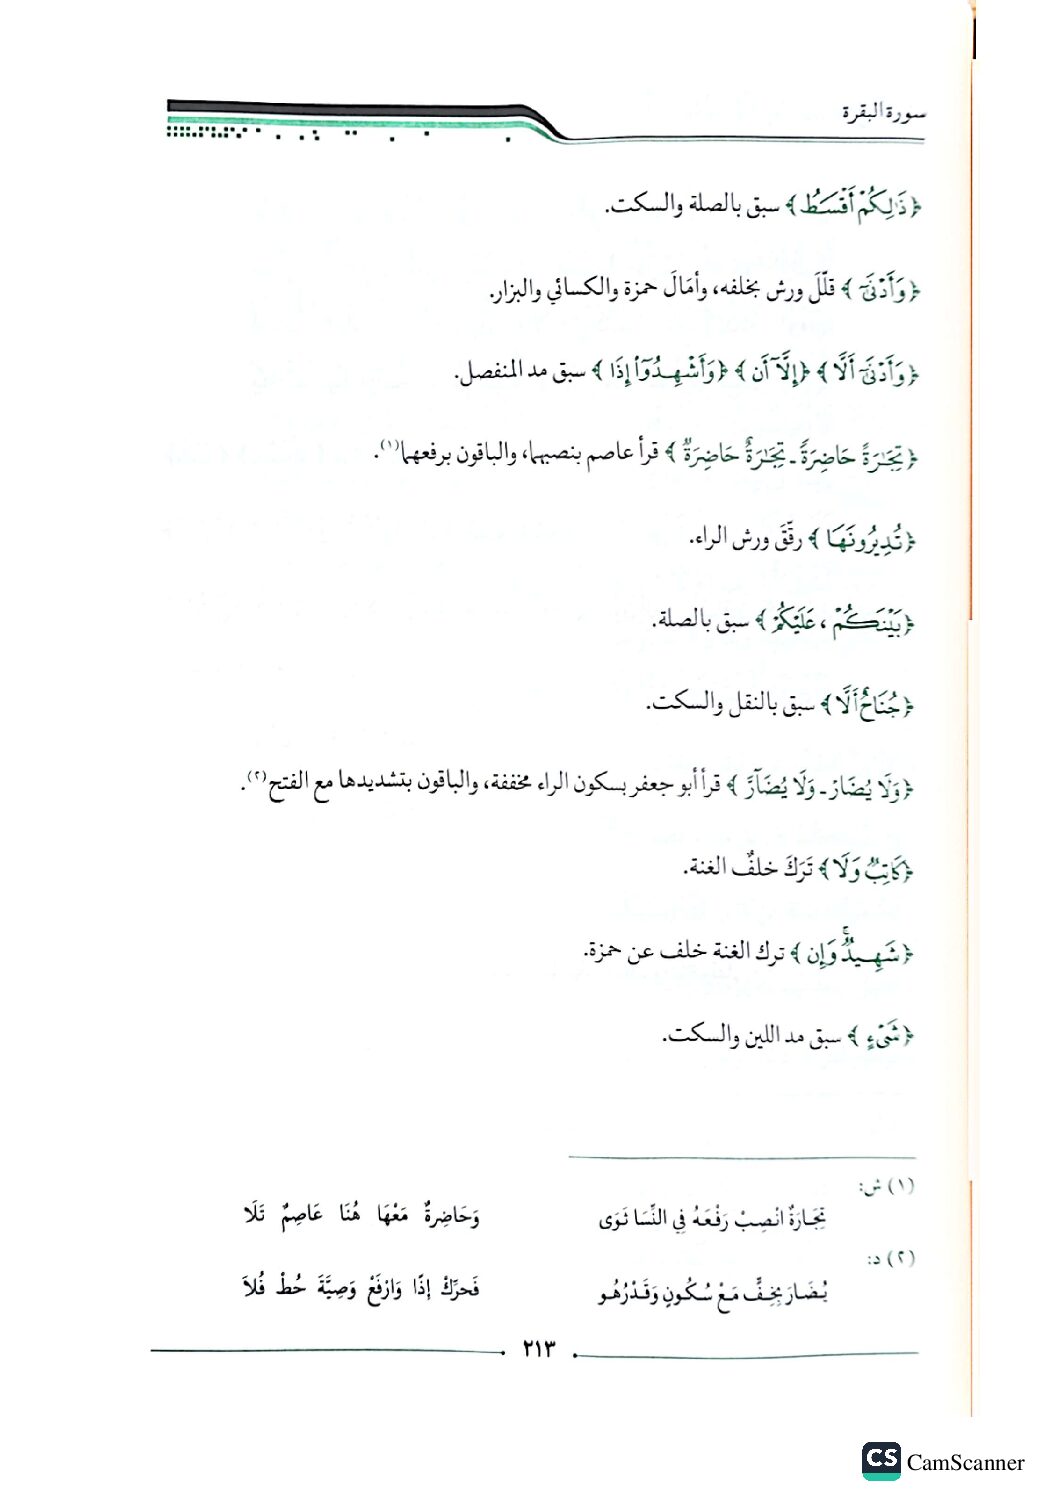 سورة البقرة
﴿ذَٰلِكُمْ أَقْسَطُ﴾ سبق بالصلة والسكت.
﴿وَأَدْنَىٰٓ﴾ قلّلَ ورش بخلفه، وأمَالَ حمزة والكسائي والبزار.
﴿وَأَدْنَىٰٓ أَلَّا﴾ ﴿إِلَّآ أَن﴾ ﴿وَأَشْهِدُوٓا۟ إِذَا﴾ سبق مد المنفصل.
﴿تِجَٰرَةً حَاضِرَةً ـ تِجَٰرَةٌ حَاضِرَةٌ﴾ قرأ عاصم بنصبهما، والباقون برفعهما(١).
﴿تُدِيرُونَهَا﴾ رقّقَ ورش الراء.
﴿بَيْنَكُمْ ، عَلَيْكُمْ﴾ سبق بالصلة.
﴿جُنَاحٌ أَلَّا﴾ سبق بالنقل والسكت.
﴿وَلَا يُضَارْ ـ وَلَا يُضَآرَّ﴾ قرأ أبو جعفر بسكون الراء مخففة، والباقون بتشديدها مع الفتح(٢).
﴿كَاتِبٌ وَلَا﴾ تَرَكَ خلفٌ الغنة.
﴿شَهِيدٌ ۚ وَإِن﴾ ترك الغنة خلف عن حمزة.
﴿شَىْءٍ﴾ سبق مد اللين والسكت.
(١) ش:
تِجَارَةٌ انْصِبْ رَفْعَهُ فِي النِّسَا ثَوَى وَحَاضِرةٌ مَعْهَا هُنَا عَاصِمٌ تَلَا
(٢) د:
يُضَارَ بِخِفٍّ مَعْ سُكُونٍ وَقَدْرُهُو فَحَرِّكْ إِذًا وَارْفَعْ وَصِيَّةَ حُطْ فُلاَ
٢١٣
CS CamScanner